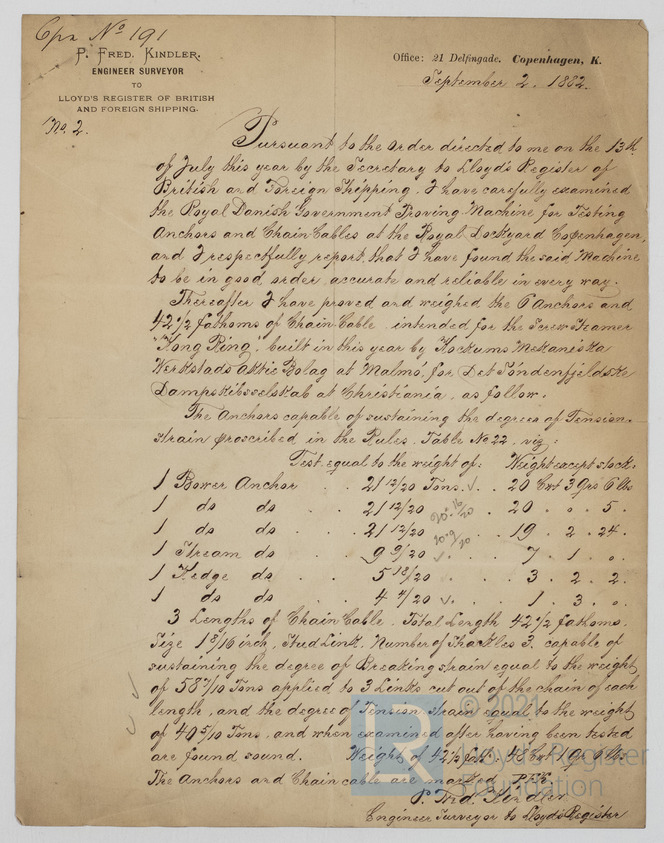 Cpn No 191
P. FRED. KINDLER.
ENGINEER SURVEYOR
TO
LLOYD'S REGISTER OF BRITISH
AND FOREIGN SHIPPING.
Office: 21 Delfingade. Copenhagen, K.
September 2. 1882.
No. 2.
Pursuant to the order directed to me on the 13th
of July this year by the Secretary to Lloyd's Register of
British and Foreign Shipping. I have carefully examined
the Royal Danish Government Proving Machine for Testing
Anchors and Chain Cables at the Royal Dockyard Copenhagen,
and I respectfully report that I have found the said Machine
to be in good order, accurate and reliable in every way.
Thereafter I have proved and weighed the 6 Anchors and
42 1/2 fathoms of Chain Cable intended for the Screw Steamer
"Kong Ring", built in this year by Kockums Mekaniska
Werkstads Aktie Bolag at Malmö, for Det Söndenfjeldske
Dampskibsselskab at Christiania, as follow.
The Anchors capable of sustaining the degrees of Tension-
strain proscribed in the Rules. Table No 22. viz:
Test equal to the weight of: Weight except stock:
1 Bower Anchor . . 21 12/20 Tons. . . 20 Cwt 3 Qrs 6 lbs
1 do do . . . 21 12/20 . . 20 . o . 5.
1 do do . . . 21 12/20 . . 19 . 2 . 24.
1 Stream do . . . 9 9/20 . . . 7 . 1 . o.
1 Kedge do . . . 5 18/20 . . . 3 . 2 . 2.
1 do do . . . 4 4/20 . . . 1 . 3 . o.
3 Lengths of Chain Cable. Total Length 42 1/2 fathoms.
Size 1 3/16 inch, Stud Link. Number of Shackles 3. capable of
sustaining the degree of Breakingstrain equal to the weight
of 58 7/10 Tons applied to 3 Links cut out of the chain of each
length, and the degree of Tension strain equal to the weight
of 40 5/10 Tons. and when examined after having been tested
are found sound. Weight of 42 1/2 fath: Cwt Qrs lbs.
The Anchors and Chain cable are marked P.F.K.
P. Fred. Kindler
Engineer Surveyor to Lloyd's Register
© 2021
Lloyd's Register
Foundation
LR